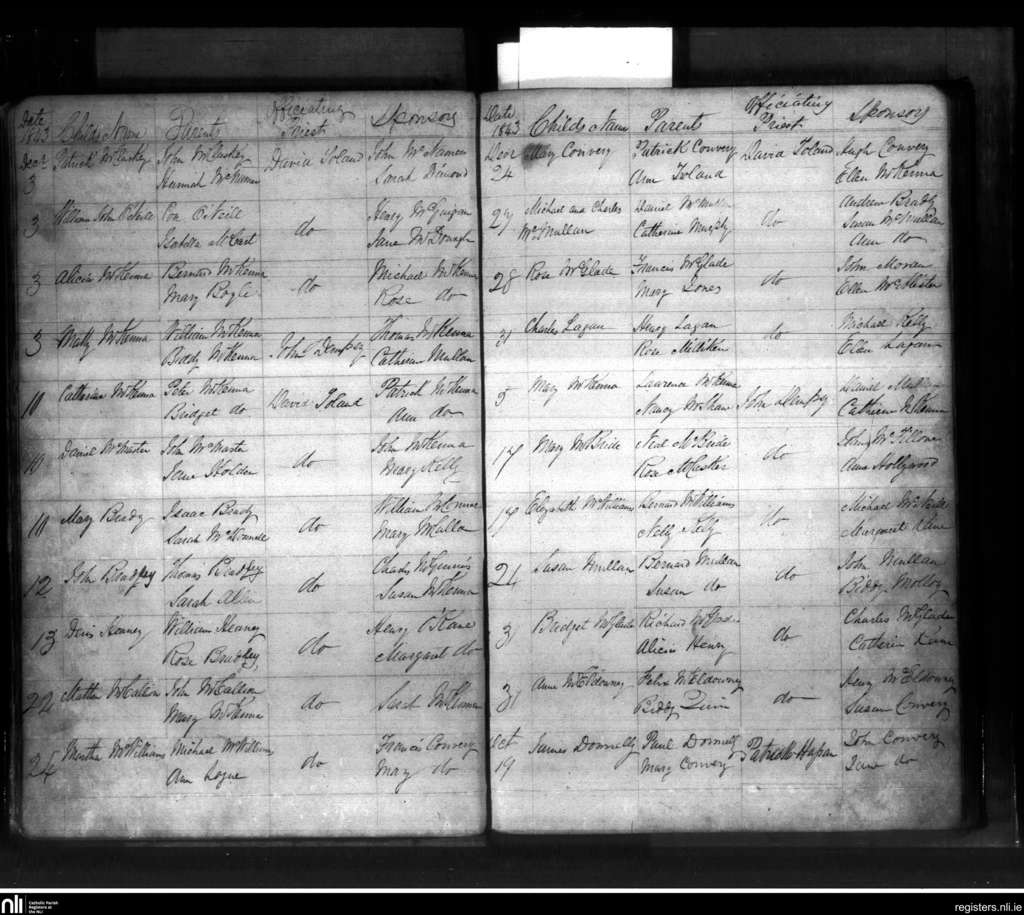 Date 1843 Childs Name Parents Officiating Priest Sponsors
Decr 3 Patrick McCluskey John McCluskey David Toland John McNamee
Hannah McNamee Sarah Dimond
3 William John O'Neill Con O'Neill do Henry McGuigan
Isabella Jane
3 Alicia McKenna Bernard McKenna do Michael McKenna
Mary Rose do
3 Matty McKenna William McKenna John Dempsey Thomas McKenna
Biddy McKenna Catherine Mullan
10 Catherine McKenna Peter McKenna David Toland Patrick McKenna
Bridget do Ann do
10 Daniel McMaster John McMaster do John McKenna
Jane Holden Mary Kelly
11 Mary Brady Isaac Brady do William
Sarah McDonnell Mary
12 John Bradley Thomas Bradley do Charles McGinnis
Sarah Allen Susan McKenna
13 Denis Heaney William Heaney do Henry O'Kane
Rose Bradley Margaret do
22 McCallion John McCallion do Sarah McKenna
Mary McKenna
24 Martha McWilliams Michael McWilliams do Francis Convery
Ann Logue Mary do
Date 1843 Childs Name Parents Officiating Priest Sponsors
Decr 24 Mary Convery Patrick Convery David Toland Hugh Convery
Ann Toland Ellen McKenna
27 Michael and Charles Daniel McMullan do Andrew Brady
McMullan Catherine Murphy Susan McMullan
Ann do
28 Rose McGlade Francis McGlade do John Moran
Mary Jones Ellen
31 Charles Lagan Henry Lagan do Michael Kelly
Rose Milliken Ellen Lagan
5 Mary McKenna Lawrence McKenna John Dempsey Daniel
Nancy McShane Catherine McKenna
17 Mary McBride Neal McBride do John
Rose McCusker Anne Hollywood
17 Elizabeth McWilliams Bernard McWilliams do Michael
Nelly Kelly Margaret Kane
24 Susan Mullan Bernard Mullan do John Mullan
Susan do Biddy Molloy
31 Bridget McGlade Richard McGlade do Charles McGlade
Alicia Henry Catherine Kane
31 Anne McEldowney Felix McEldowney do Henry McEldowney
Biddy Quinn Susan Convery
Oct 19 James Donnelly Paul Donnelly Patrick Hassan John Convery
Mary Convery Jane do
nli
Catholic Parish
Registers at
the NLI
registers.nli.ie